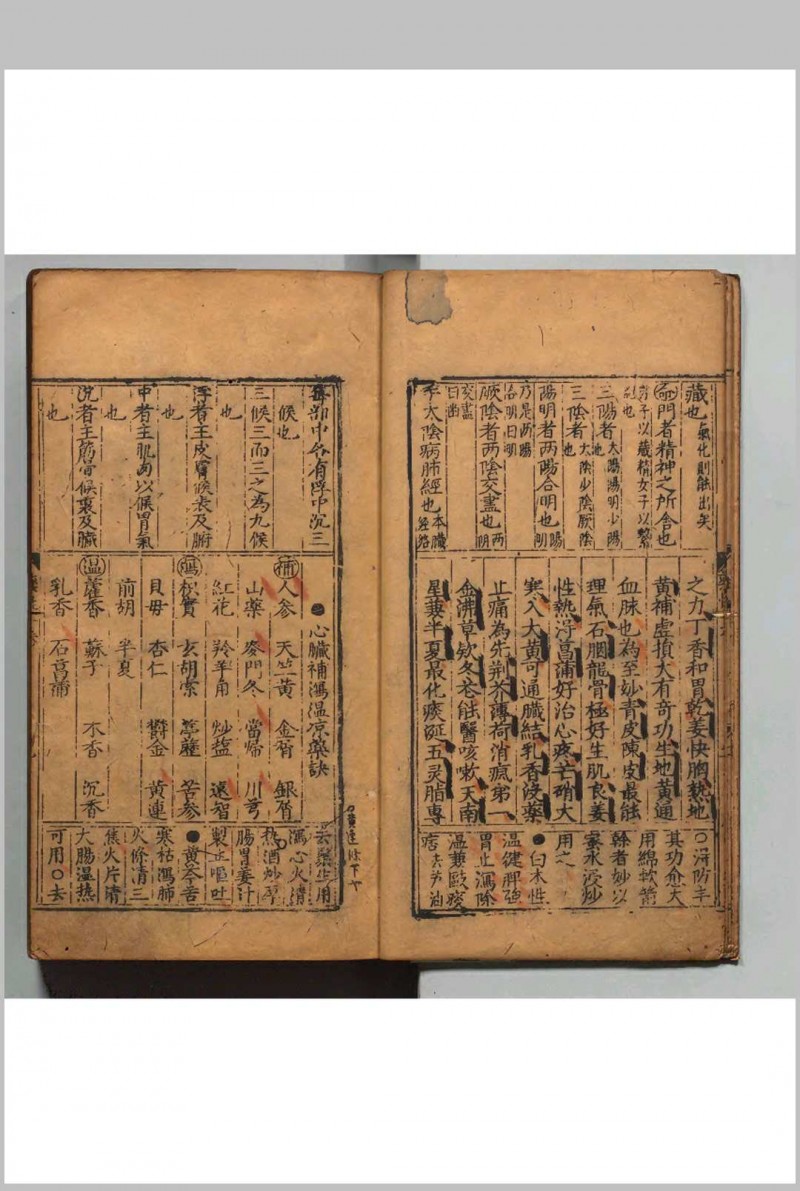 藏也氣化則能出矣
命門者精神之所舍也
男子以藏精女子以繫
胞也
三陽者太陽陽明少陽
也
三陰者太陰少陰厥陰
也
陽明者两陽合明也两陽
合明曰明
厥陰者两陰交盡也两陰
交盡曰幽
手太陰病肺經也本臟
經絡
之力丁香和胃乾姜快胸熟地
黄補虚損大有奇功生地黄通
血脉也為至妙青皮陳皮最能
理氣石胭龍骨極好生肌良姜
性熱浔菖蒲好治心疼芒硝大
寒入大黄可通臓結乳香沒藥
止痛為先荆芥薄荷消瘋第一
金沸草欵冬花能醫咳嗽天南
星兼半夏最化痰涎五灵脂專
○浔防丰
其功愈大
用綿軟箭
幹者妙以
蜜水浸炒
用之
●白术性
温健脾强
胃止瀉除
濕兼歐痰
痞去芦油
每部中各有浮中沉三
候也
三候三而三之為九候
也
浮者主皮膚候表及腑
也
中者主肌肉以候胃氣
也
沉者主筋骨候裏及臓
也
●心臓補瀉温凉藥訣
補人参 天竺黄 金箔 銀箔
山藥 麥門冬 當帰 川芎
紅花 羚羊角 炒盐 遠智
瀉枳實 玄胡索 葶藶 苦参
貝母 杏仁 欝金 黄連
前胡 半夏
温藿香 蘇子 木香 沉香
乳香 石菖蒲
去鬚生用
瀉心火清
热酒炒厚
腸胃姜汁
製止嘔吐
●黄芩苦
寒枯瀉肺
火條清三
焦火片清
大腸温热
可用○去